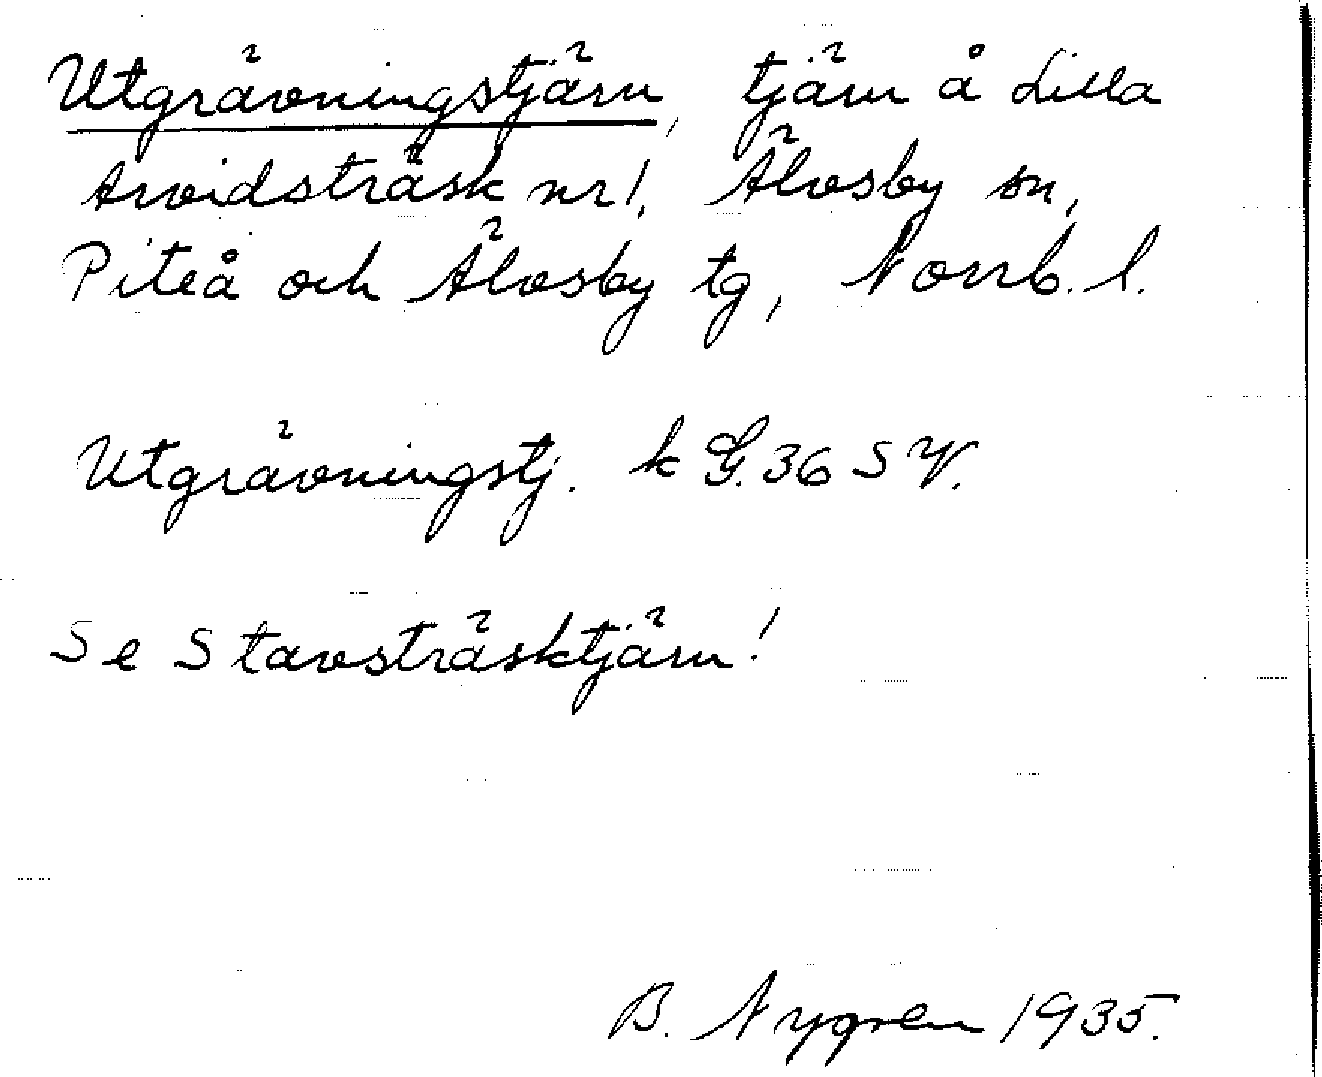 Utgrävningstjärn, tjärn å Lilla
Arvidsträsk nr 1, Älvsby sn,
Piteå och Älvsby tg, Norrb. l.
Utgrävningstj. k G. 36 S V.
Se Stavsträsktjärn!
B. Nygren 1935.